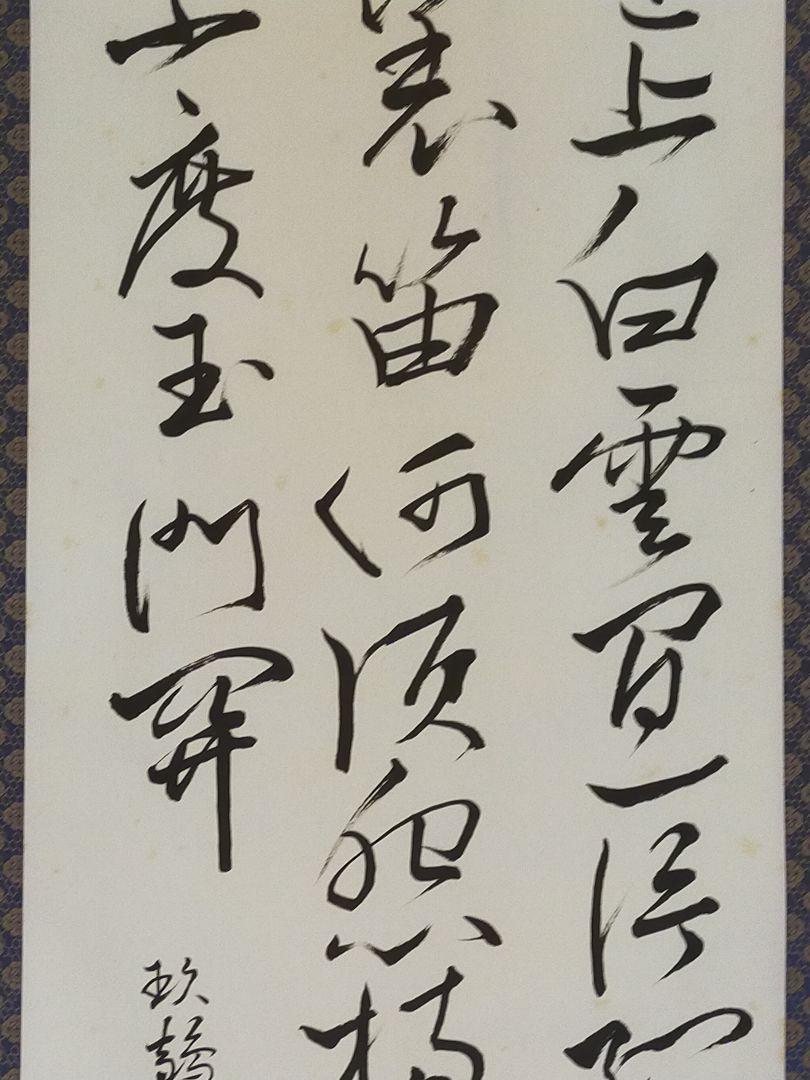 上白雲間一片
羌笛何須怨楊
不度玉門關
玖